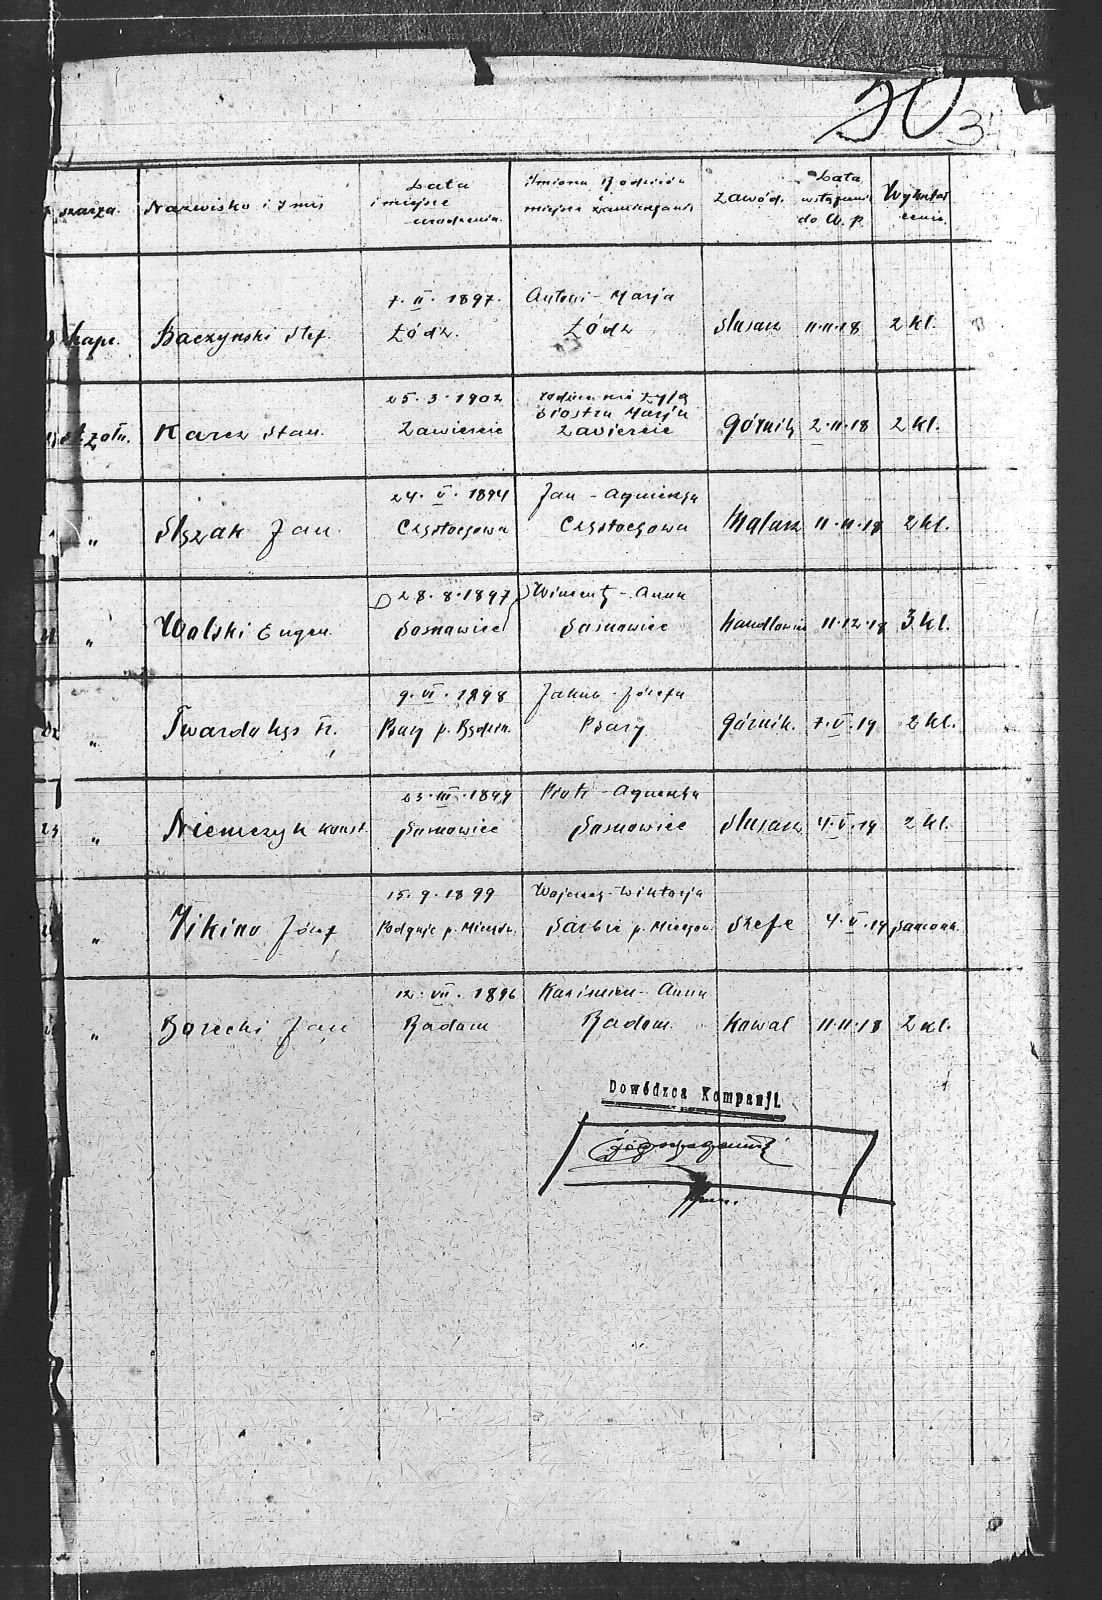 30
szarża. Nazwisko i Imię Data i miejsce urodzenia. Imiona Rodziców miejsce zamieszkania zawód. Data wstąpienia do W. P. Wykształcenie
7. II. 1897. Antoni - Marja
kapr. Baczyński Stef. Łódź. Łódź slusarz 11.11.18 2 kl.
25. 3. 1902 rodzice nie żyją
siostra Marja
st. żołn. Karcz Stan. Zawiercie Zawiercie górnik 2.11.18 2 kl.
24. V. 1894 Jan - Agnieszka
" Jan Częstochowa Częstochowa Malarz 11.11.18 2 kl.
28. 8. 1897 Wincenty - Anna
" Wolski Eugen. Sosnowiec Sosnowiec handlowiec 11.12.18 3 kl.
9. VI. 1898 Jakub - Józefa
" Twardokęs Fr. Psary p. Będzin. Psary górnik. 7.V.19 2 kl.
23. III. 1899 Piotr - Agnieszka
23 " Niemczyk Konst. Sosnowiec Sosnowiec slusarz 4.V.19 2 kl.
15. 9. 1899 Wojciech - Wiktorja
" Józef p. Miechów. p. Miechów. 4.V.19
12. VII. 1896 Kazimierz - Anna
" Borecki Jan Radom Radom. Kowal 11.11.18 2 kl.
Dowódzca Kompanji.